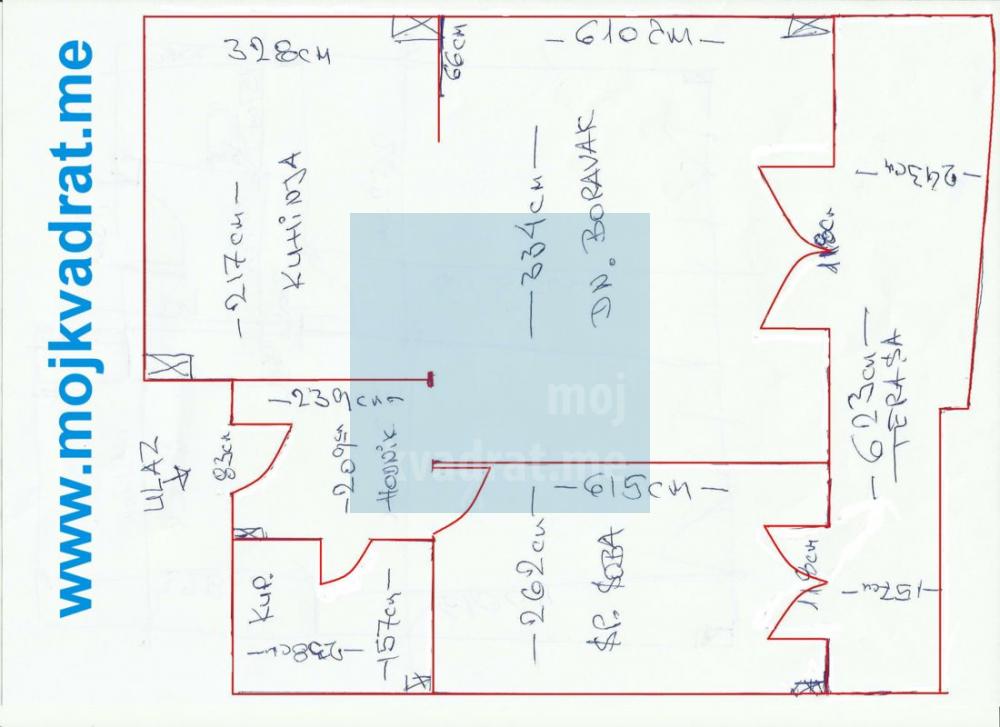 www.mojkvadrat.me
328cm
66cm
-610cm-
-217cm-
KUHINJA
-334cm-
DN. BORAVAK
-243cm-
118cm
-239cm-
ULAZ
83cm
-209cm-
HODNIK
-623cm-
TERASA
moj
kvadrat.me
-615cm-
-262cm-
SP. SOBA
118cm
-157cm-
KUP.
-238cm-
-157cm-